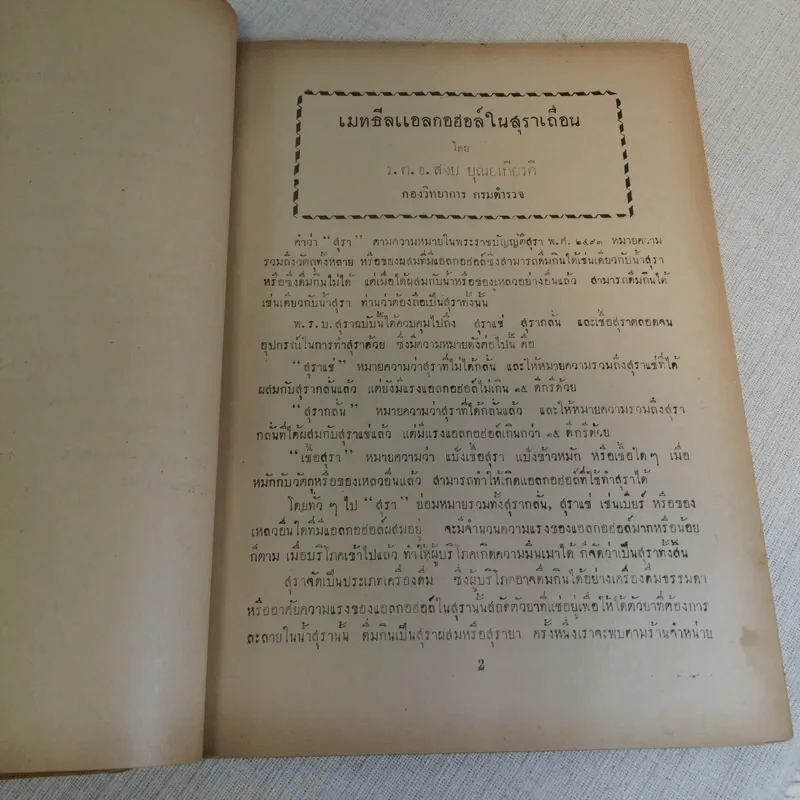 เมทธีลแอลกอฮอล์ในสุราเถื่อน
โดย
ร.ต.อ. สงบ บุณยเกียรติ
กองวิทยาการ กรมตำรวจ
คำว่า “สุรา” ตามความหมายในพระราชบัญญัติสุรา พ.ศ. ๒๔๙๓ หมายความ
รวมถึงวัตถุทั้งหลาย หรือของผสมที่มีแอลกอฮอล์ซึ่งสามารถดื่มกินได้เช่นเดียวกับน้ำสุรา
หรือซึ่งดื่มกินไม่ได้ แต่เมื่อได้ผสมกับน้ำหรือของเหลวอย่างอื่นแล้ว สามารถดื่มกินได้
เช่นเดียวกับน้ำสุรา ท่านว่าต้องถือเป็นสุราทั้งนั้น
พ.ร.บ.สุราฉบับนี้ได้ควบคุมไปถึง สุราแช่ สุรากลั่น และเชื้อสุราตลอดจน
อุปกรณ์ในการทำสุราด้วย ซึ่งมีความหมายดังต่อไปนี้ คือ
“สุราแช่” หมายความว่าสุราที่ไม่ได้กลั่น และให้หมายความรวมถึงสุราแช่ที่ได้
ผสมกับสุรากลั่นแล้ว แต่ยังมีแรงแอลกอฮอล์ไม่เกิน ๑๕ ดีกรีด้วย
“สุรากลั่น” หมายความว่าสุราที่ได้กลั่นแล้ว และให้หมายความรวมถึงสุรา
กลั่นที่ได้ผสมกับสุราแช่แล้ว แต่มีแรงแอลกอฮอล์เกินกว่า ๑๕ ดีกรีด้วย
“เชื้อสุรา” หมายความว่า แป้งเชื้อสุรา แป้งข้าวหมัก หรือเชื้อใดๆ เมื่อ
หมักกับวัตถุหรือของเหลวอื่นแล้ว สามารถทำให้เกิดแอลกอฮอล์ที่ใช้ทำสุราได้
โดยทั่ว ๆ ไป “สุรา” ย่อมหมายรวมทั้งสุรากลั่น, สุราแช่ เช่นเบียร์ หรือของ
เหลวอื่นใดที่มีแอลกอฮอล์ผสมอยู่ จะมีจำนวนความแรงของแอลกอฮอล์มากหรือน้อย
ก็ตาม เมื่อบริโภคเข้าไปแล้ว ทำให้ผู้บริโภคเกิดความมึนเมาได้ ก็จัดว่าเป็นสุราทั้งสิ้น
สุราจัดเป็นประเภทเครื่องดื่ม ซึ่งผู้บริโภคอาจดื่มกินได้อย่างเครื่องดื่มธรรมดา
หรืออาศัยความแรงของแอลกอฮอล์ในสุรานั้นสกัดตัวยาที่แช่อยู่เพื่อให้ได้ตัวยาที่ต้องการ
ละลายในน้ำสุรานั้น ดื่มกินเป็นสุราผสมหรือสุรายา ครั้งหนึ่งเราจะพบตามร้านจำหน่าย
2